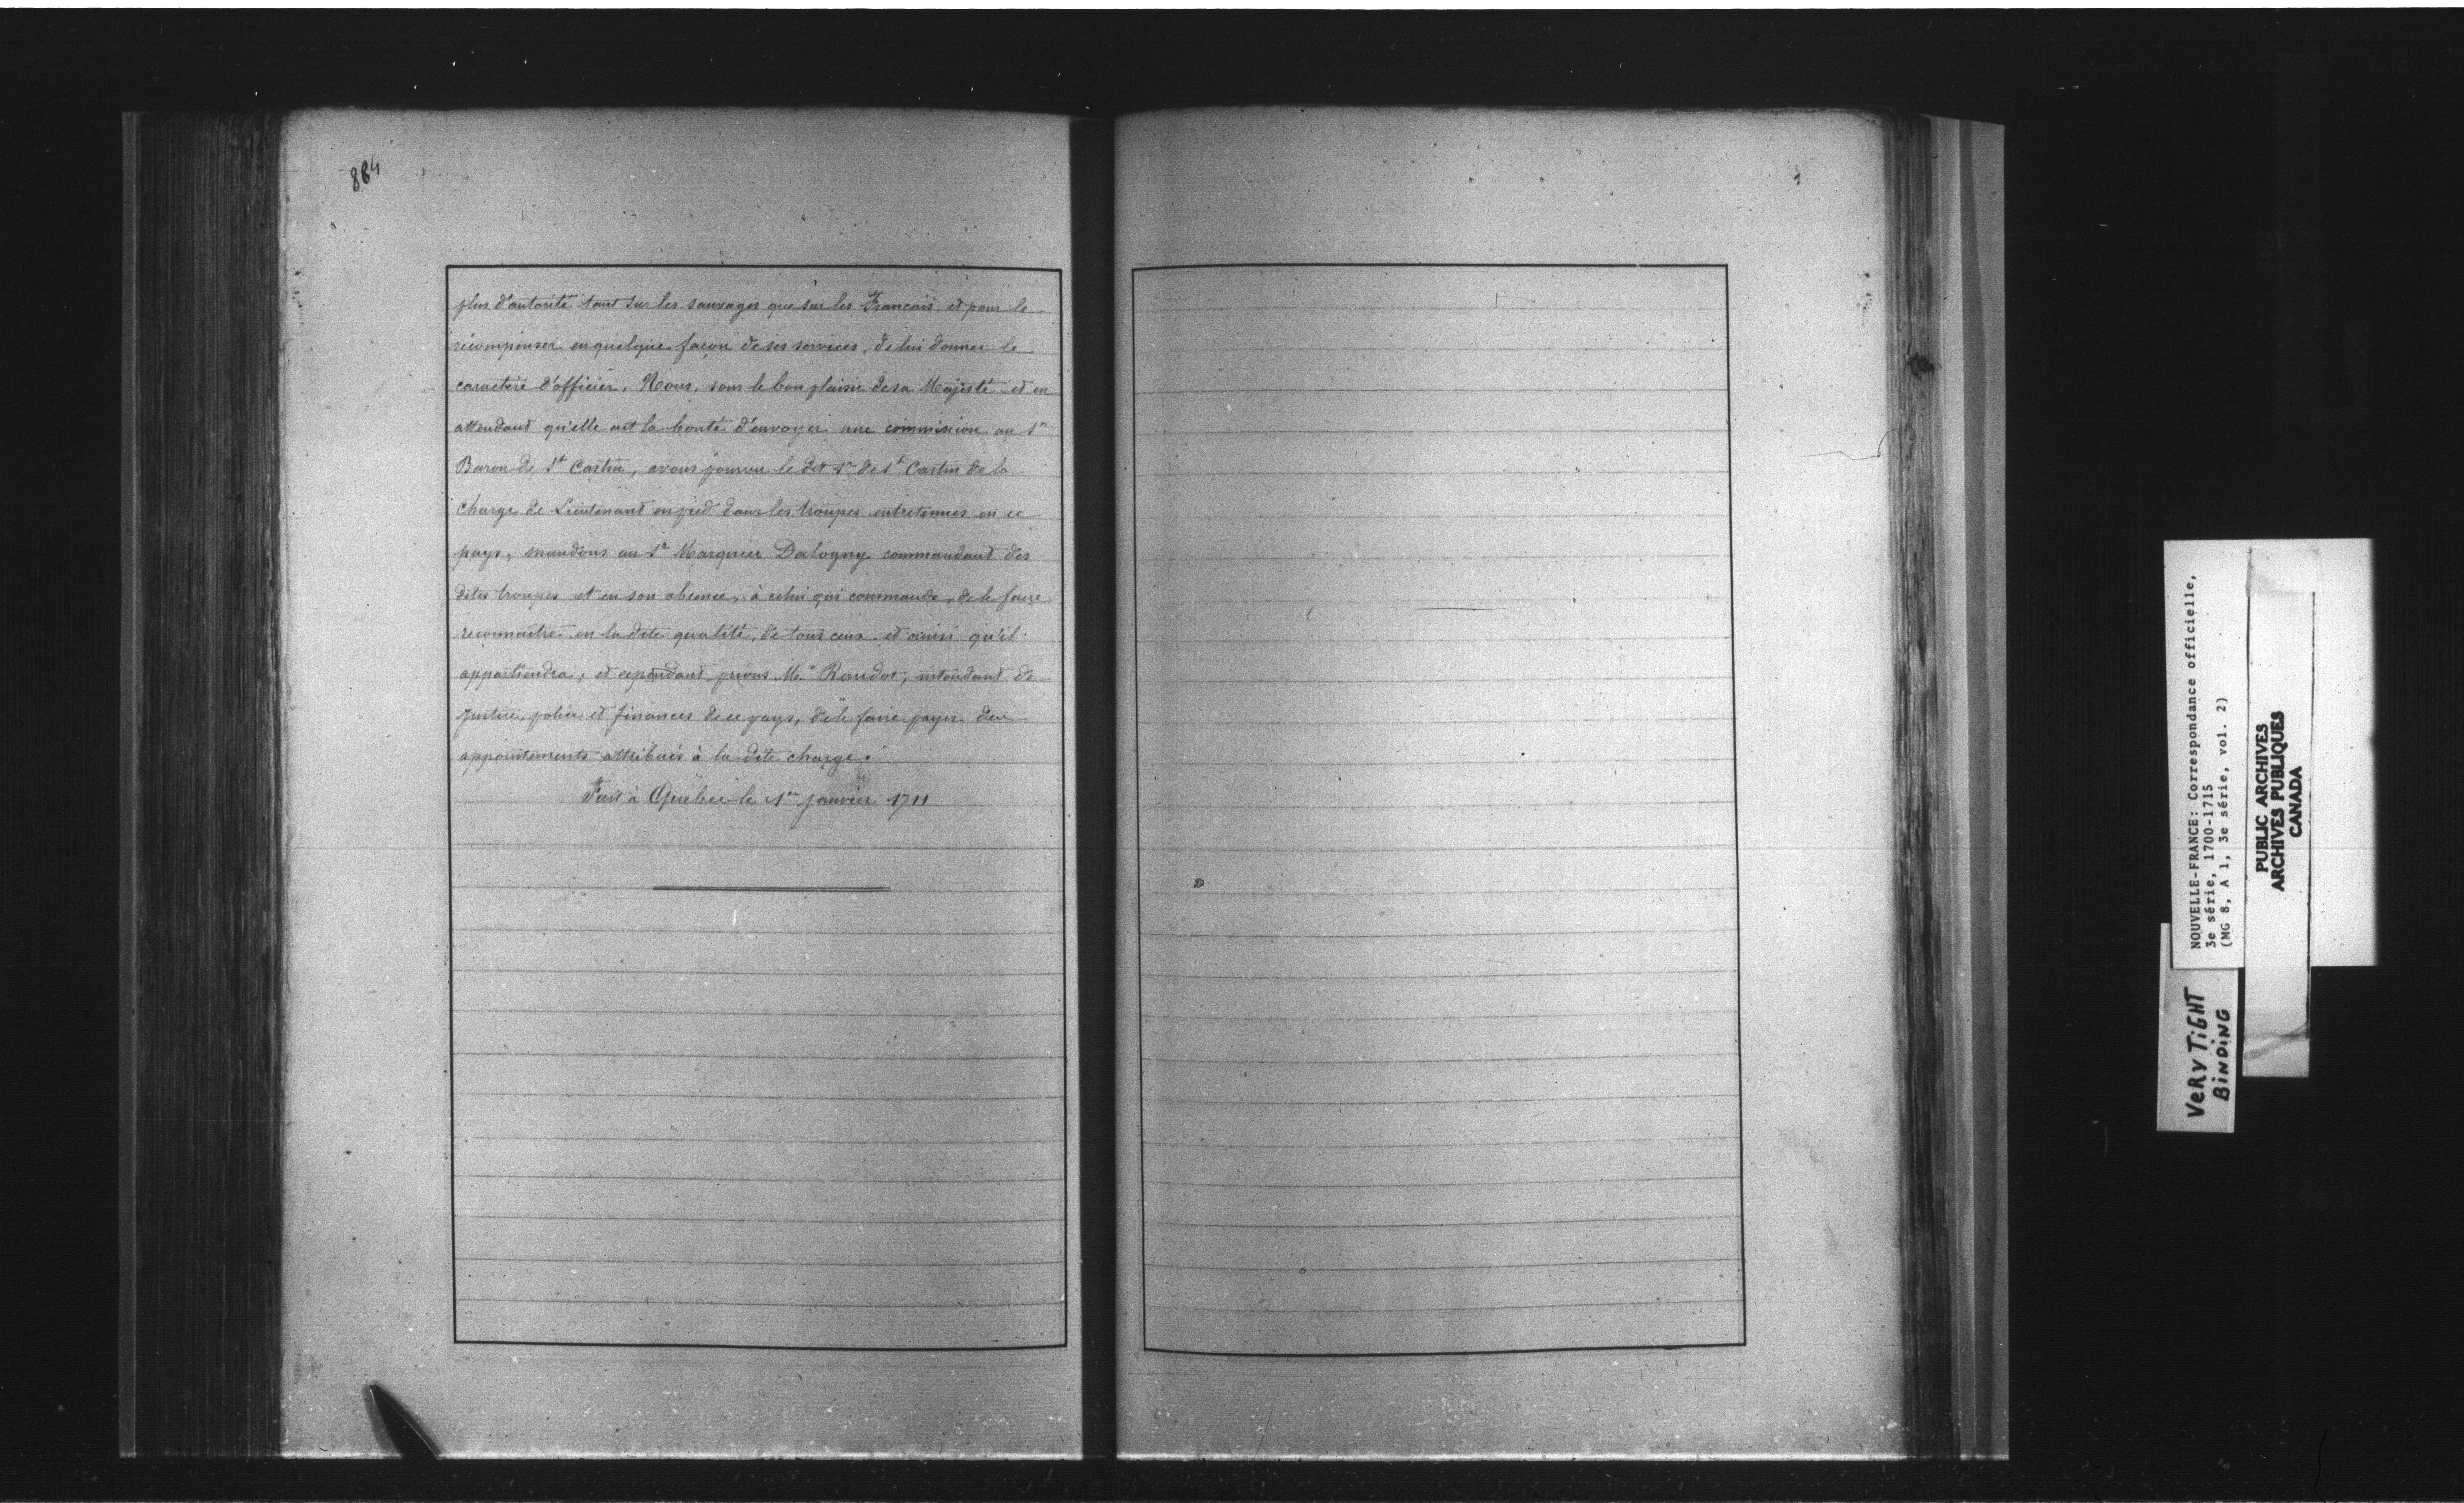 884
plus d'autorité tant sur les sauvages que sur les Francais et pour le
récompenser en quelque façon de ses services, de lui donner le
caractère d'officier. Nous, sous le bon plaisir de sa Majesté et en
attendant qu'elle ait la bonté d'envoyer une commission au Sr
Baron de St Castin, avons pourvu le dit Sr de St Castin de la
charge de Lieutenant en pied dans les troupes entretenues en ce
pays, mandons au Sr Marquis Dalogny commandant des
dites troupes et en son absence, à celui qui commande, de le faire
reconnaître en la dite qualité, de tous ceux et ainsi qu'il
appartiendra, et cependant prions Mr Raudot, intendant de
justice, police et finances de ce pays, de le faire payer des
appointements attribués à la dite charge.
Fait à Québec le 1er janvier 1711
NOUVELLE-FRANCE: Correspondance officielle,
3e série, 1700-1715
(MG 8, A 1, 3e série, vol. 2)
PUBLIC ARCHIVES
ARCHIVES PUBLIQUES
CANADA
VERY TiGHT
BiNDiNG